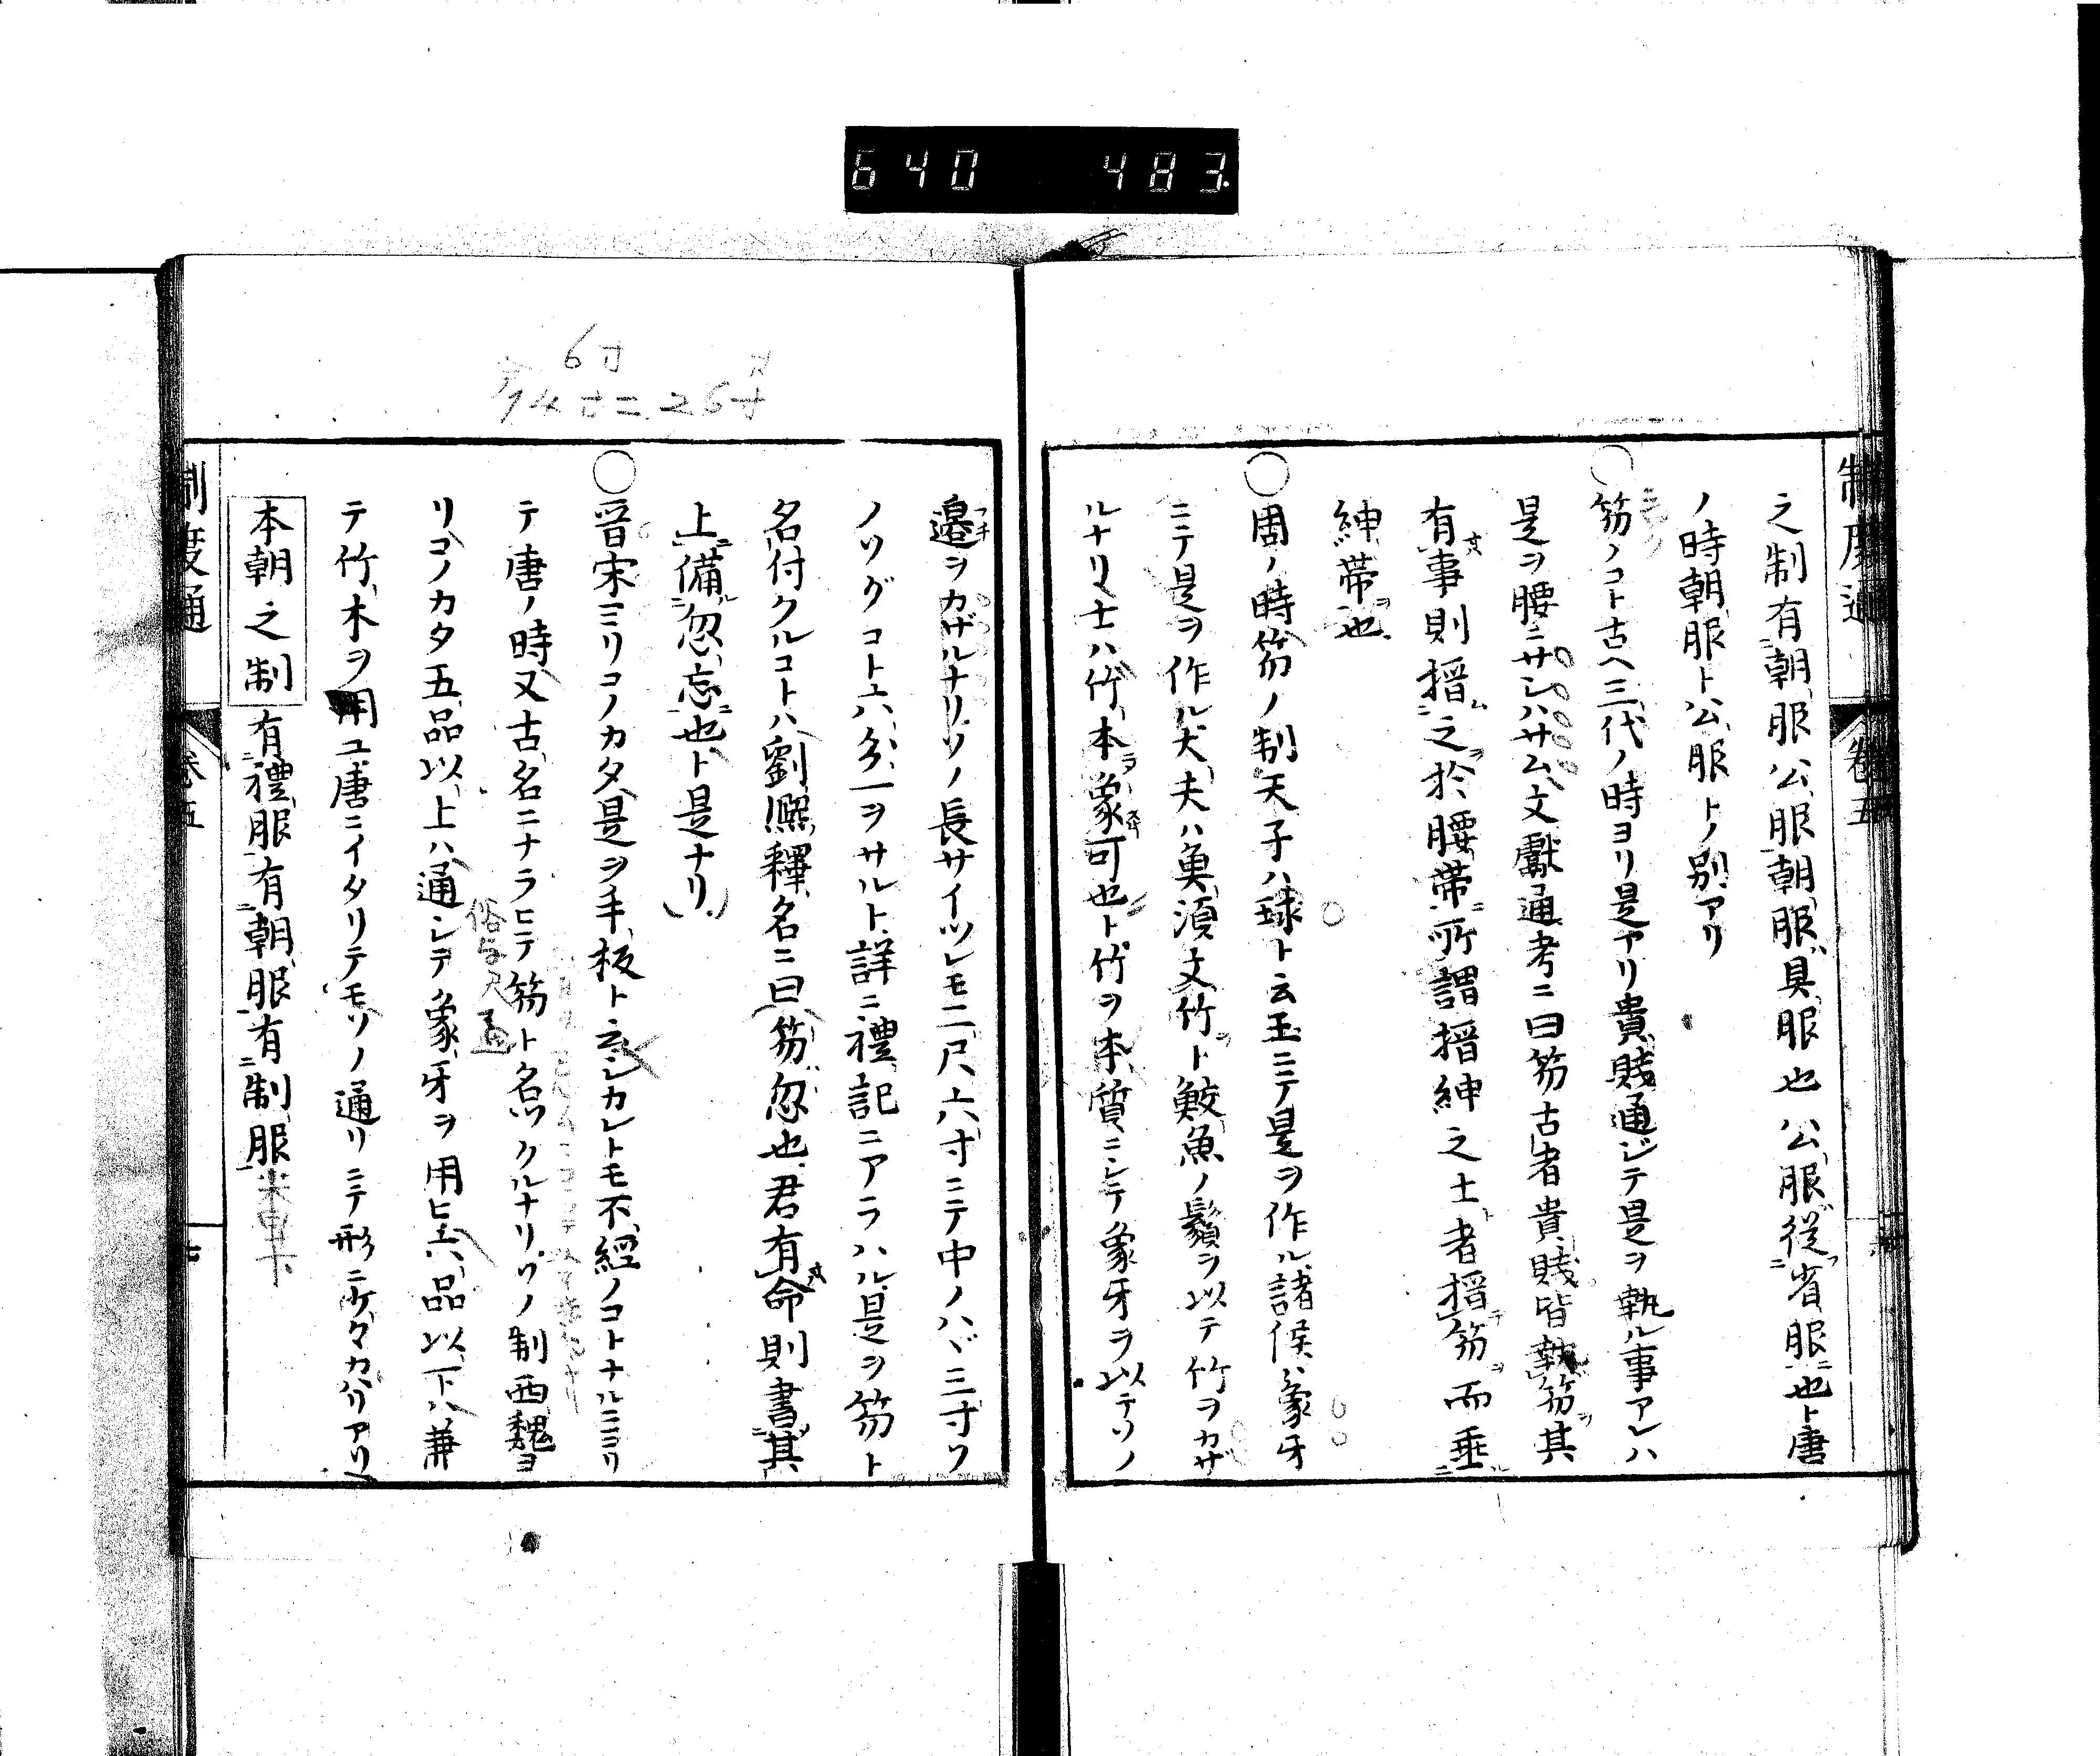 640 483
制度通 卷五
之制有朝服公服朝服具服也公服從省服也ト唐
ノ時朝服ト公服トノ別アリ
○笏ノコト古ヘ三代ノ時ヨリ是アリ貴賤通ジテ是ヲ執ル事アレハ
是ヲ腰ニサシハサム文獻通考ニ曰笏古者貴賤皆執笏其
有事則搢之於腰帶所謂搢紳之士者搢笏而垂
紳帶也
○周ノ時笏ノ制天子ハ球ト云玉ニテ是ヲ作ル諸侯ハ象牙
ニテ是ヲ作ル大夫ハ魚須文竹ト鮫魚ノ鬚ヲ以テ竹ヲカザ
ルナリ士ハ竹本象可也ト竹ヲ本質ニシテ象牙ヲ以テソノ
邉ヲカザルナリソノ長サイツレモ二尺六寸ニテ中ノハヾ三寸ソ
ノソグコト六分一ヲサルト詳ニ禮記ニアラハル是ヲ笏ト
名付クルコトハ劉熈釋名ニ曰笏忽也君有命則書其
上備忽忘也ト是ナリ
○晉宋ヨリコノカタ是ヲ手板ト云シカレトモ不經ノコトナルニヨリ
テ唐ノ時又古名ニナラヒテ笏ト名ツクルナリソノ制西魏ヨ
リコノカタ五品以上ハ通シテ象牙ヲ用ヒ六品以下ハ兼
テ竹木ヲ用ユ唐ニイタリテモソノ通リニテ形ニ少々カハリアリ
本朝之制 有禮服有朝服有制服
制度通 卷五 七